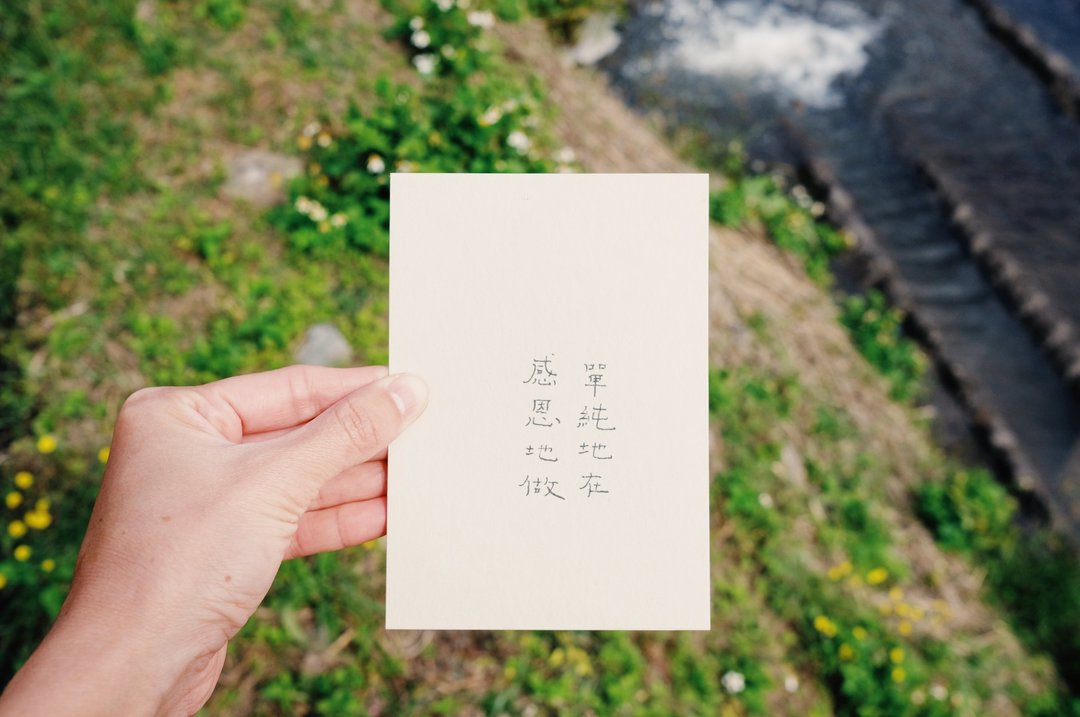 單純地在
感恩地做